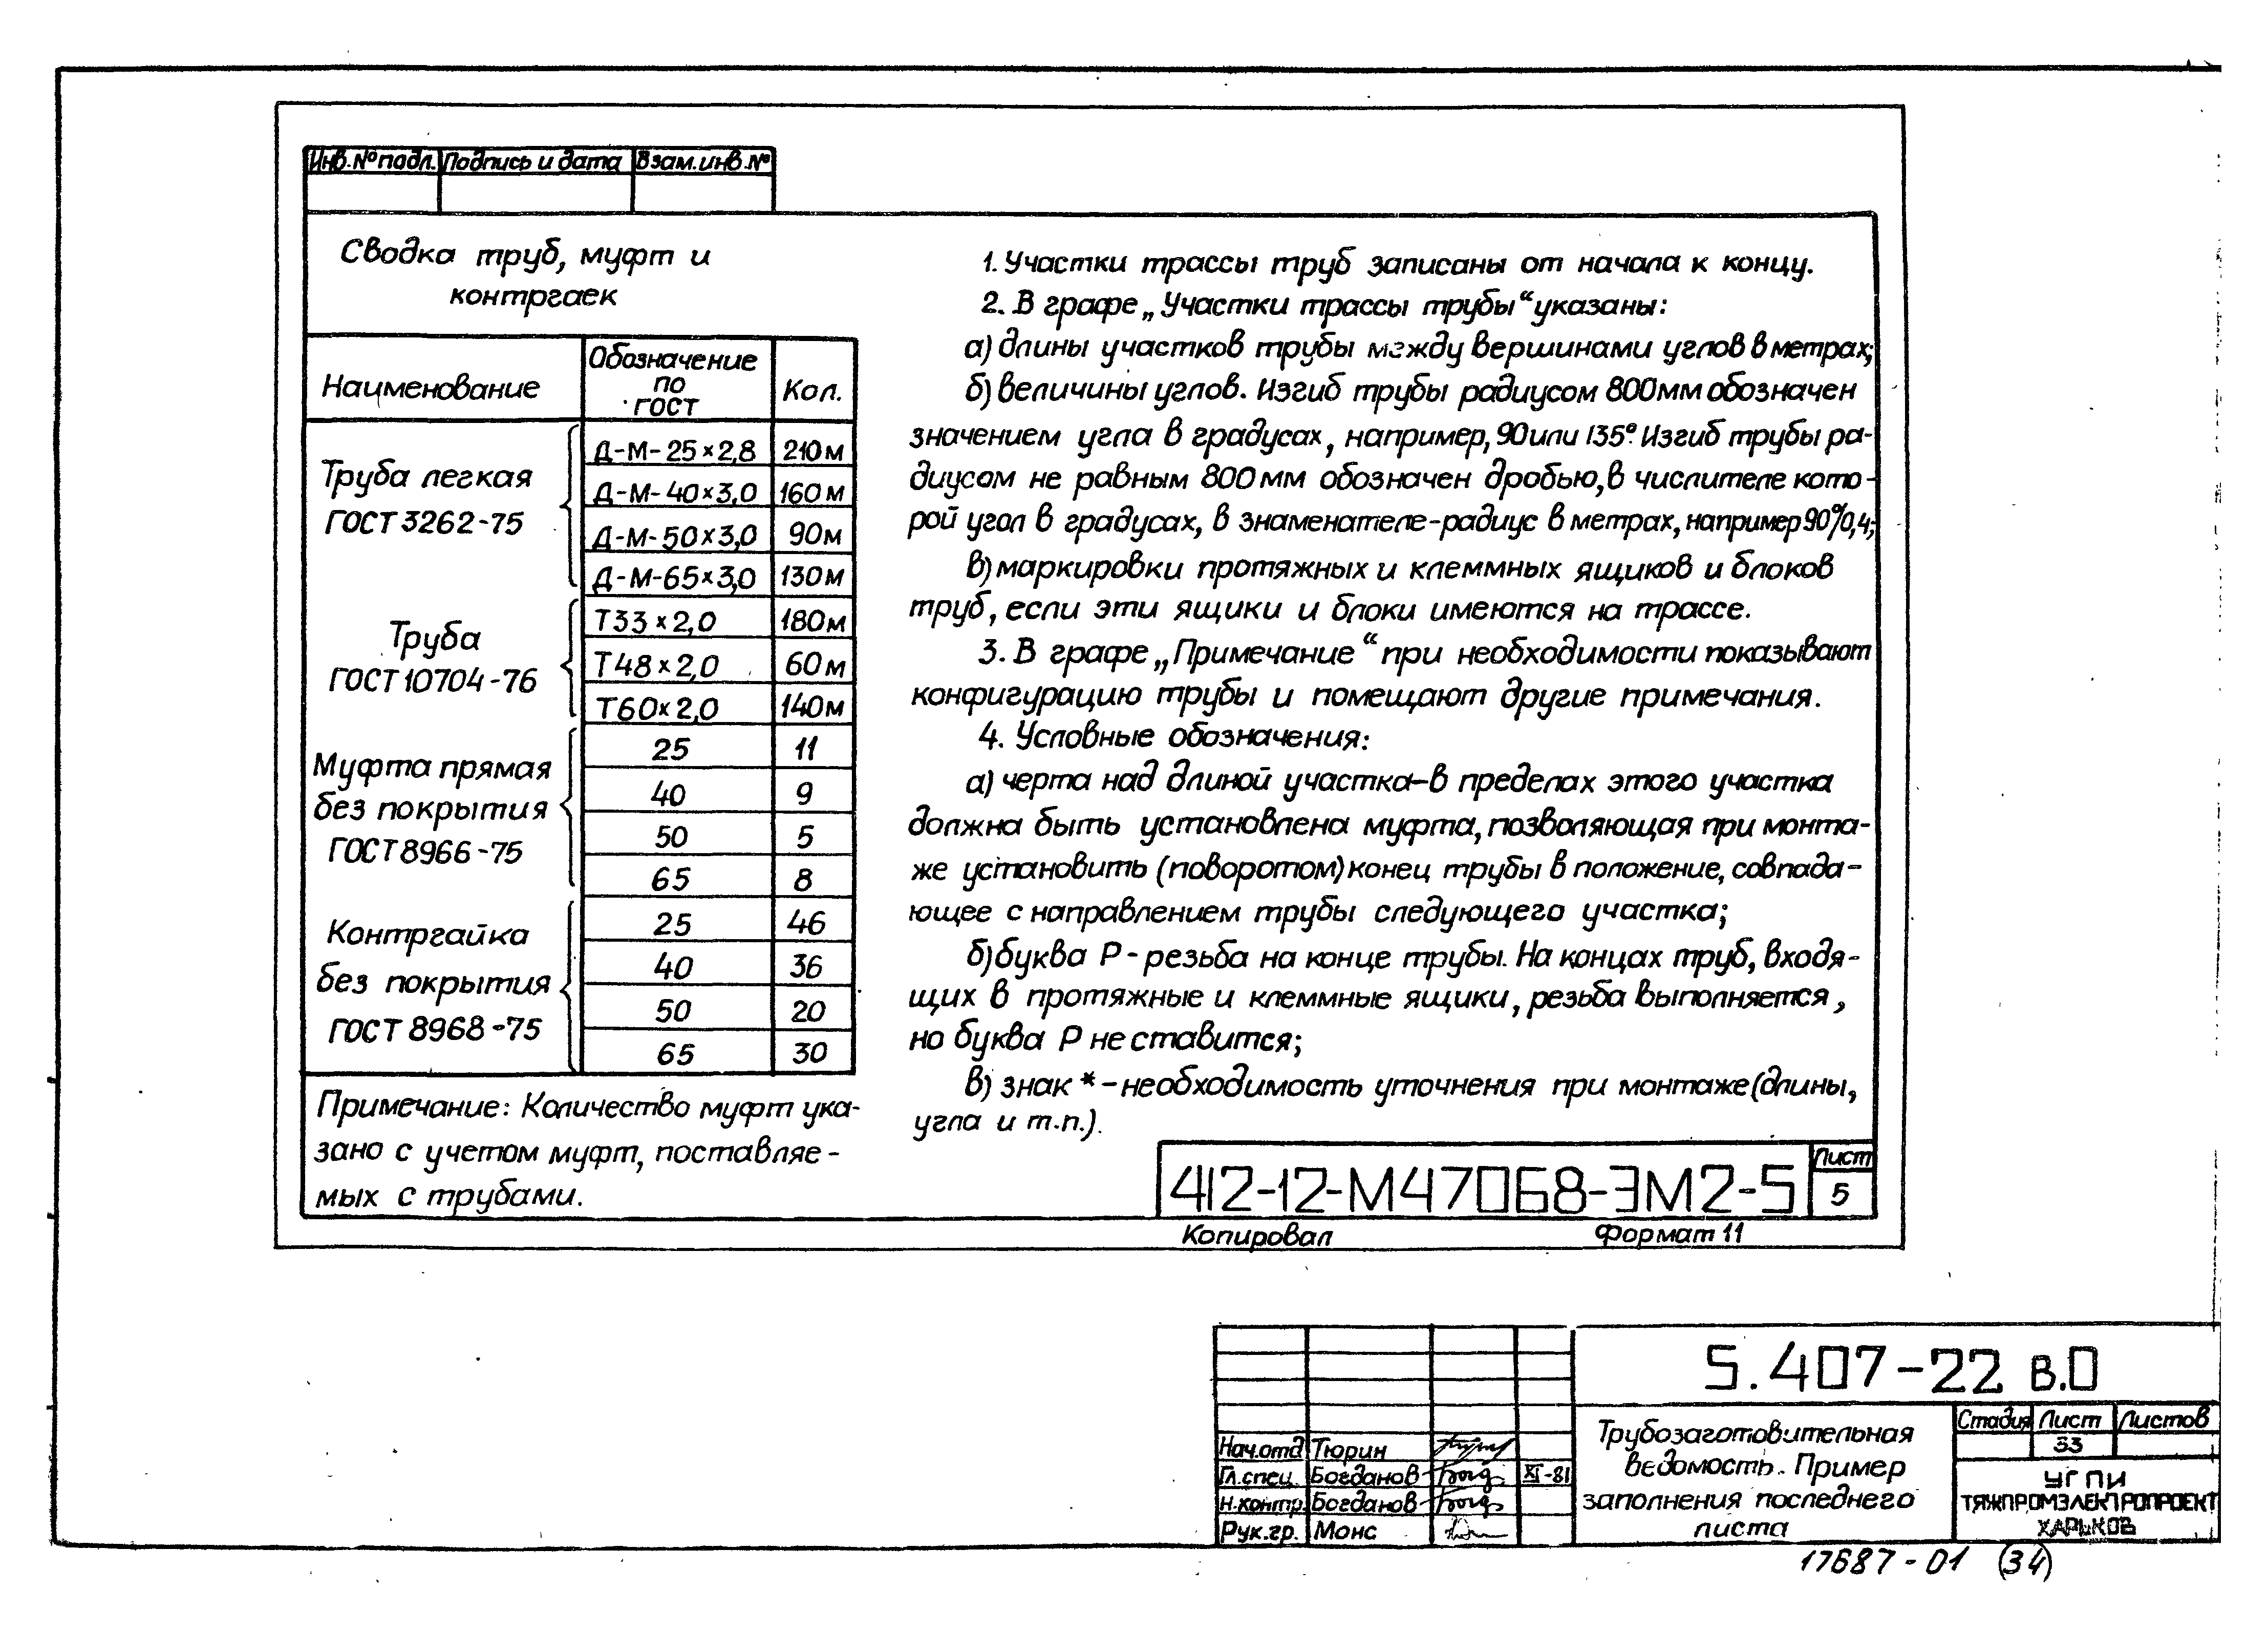 Инв.№ подл. Подпись и дата Взам.инв.№
Сводка труб, муфт и
контргаек
Наименование Обозначение по ГОСТ Кол.
Труба легкая
ГОСТ 3262-75
Д-М-25×2,8 210м
Д-М-40×3,0 160м
Д-М-50×3,0 90м
Д-М-65×3,0 130м
Труба
ГОСТ 10704-76
Т33×2,0 180м
Т48×2,0 60м
Т60×2,0 140м
Муфта прямая
без покрытия
ГОСТ 8966-75
25 11
40 9
50 5
65 8
Контргайка
без покрытия
ГОСТ 8968-75
25 46
40 36
50 20
65 30
Примечание: Количество муфт ука-
зано с учетом муфт, поставляе-
мых с трубами.
1. Участки трассы труб записаны от начала к концу.
2. В графе „Участки трассы трубы“ указаны:
а) длины участков трубы между вершинами углов в метрах;
б) величины углов. Изгиб трубы радиусом 800мм обозначен
значением угла в градусах, например, 90 или 135°. Изгиб трубы ра-
диусом не равным 800 мм обозначен дробью, в числителе кото-
рой угол в градусах, в знаменателе-радиус в метрах, например 90°/0,4;
в) маркировки протяжных и клеммных ящиков и блоков
труб, если эти ящики и блоки имеются на трассе.
3. В графе „Примечание“ при необходимости показывают
конфигурацию трубы и помещают другие примечания.
4. Условные обозначения:
а) черта над длиной участка-в пределах этого участка
должна быть установлена муфта, позволяющая при монта-
же установить (поворотом) конец трубы в положение, совпада-
ющее с направлением трубы следующего участка;
б) буква Р - резьба на конце трубы. На концах труб, входя-
щих в протяжные и клеммные ящики, резьба выполняется,
но буква Р не ставится;
в) знак * - необходимость уточнения при монтаже (длины,
угла и т.п.).
412-12-М47068-ЭМ2-5
Лист
5
Копировал Формат 11
5.407-22 в.0
Нач.отд Тюрин
Гл.спец. Богданов XI-81
Н.контр. Богданов
Рук.гр. Монс
Трубозаготовительная
ведомость. Пример
заполнения последнего
листа
Стадия Лист Листов
33
УГПИ
ТЯЖПРОМЭЛЕКТРОПРОЕКТ
ХАРЬКОВ
17687-01 (34)